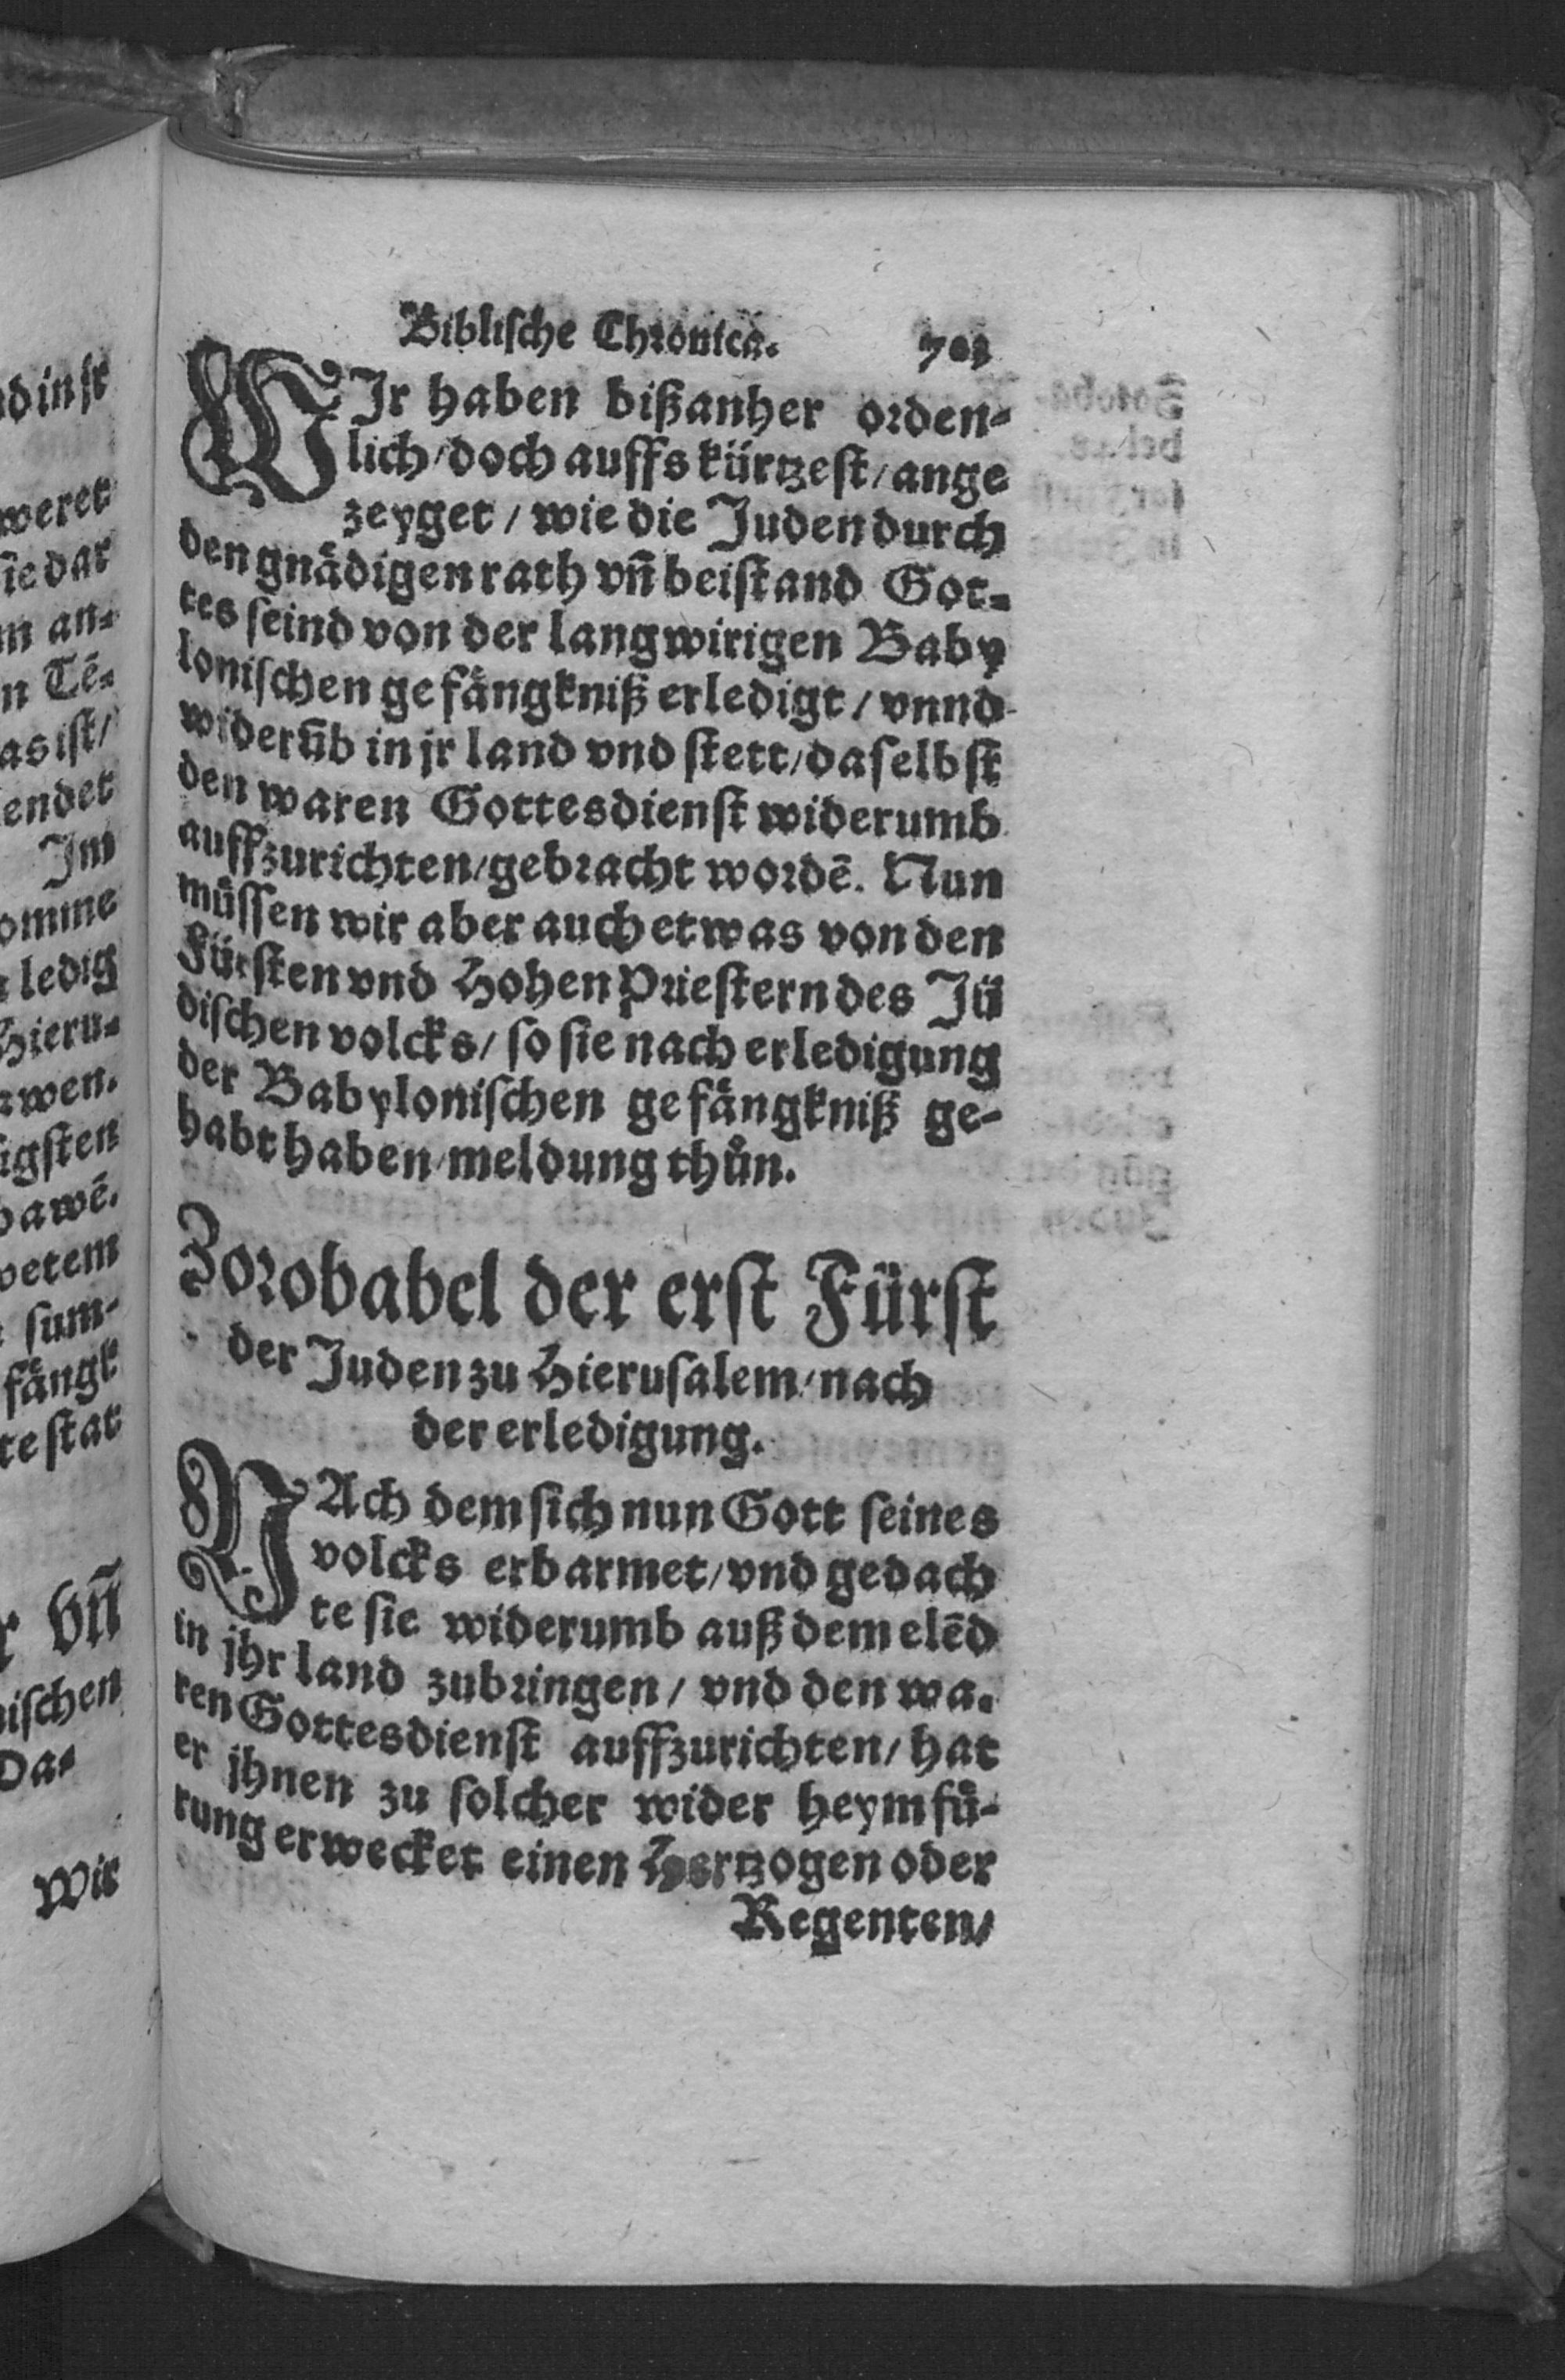 Biblische Chronica. 703
WIr haben bißanher orden-
lich/doch auffs kürtzest/ange
zeyget/wie die Juden durch
den gnådigen rath vñ beistand Got-
tes seind von der langwirigen Baby
lonischen gefångkniß erledigt/vnnd
widerūb in jr land vnd stett/daselbst
den waren Gottesdienst widerumb
auffzurichten/gebracht wordē. Nun
můssen wir aber auch etwas von den
Fürsten vnd Hohen Priestern des Jü
dischen volcks/so sie nach erledigung
der Babylonischen gefångkniß ge-
habt haben/meldung thůn.
Zorobabel der erst Fürst
der Juden zu Hierusalem/nach
der erledigung.
NAch dem sich nun Gott seines
volcks erbarmet/vnd gedach
te sie widerumb auß dem elēd
in jhr land zubringen/vnd den wa-
ren Gottesdienst auffzurichten/hat
er jhnen zu solcher wider heymfů-
rung erwecket einen Hertzogen oder
Regenten/